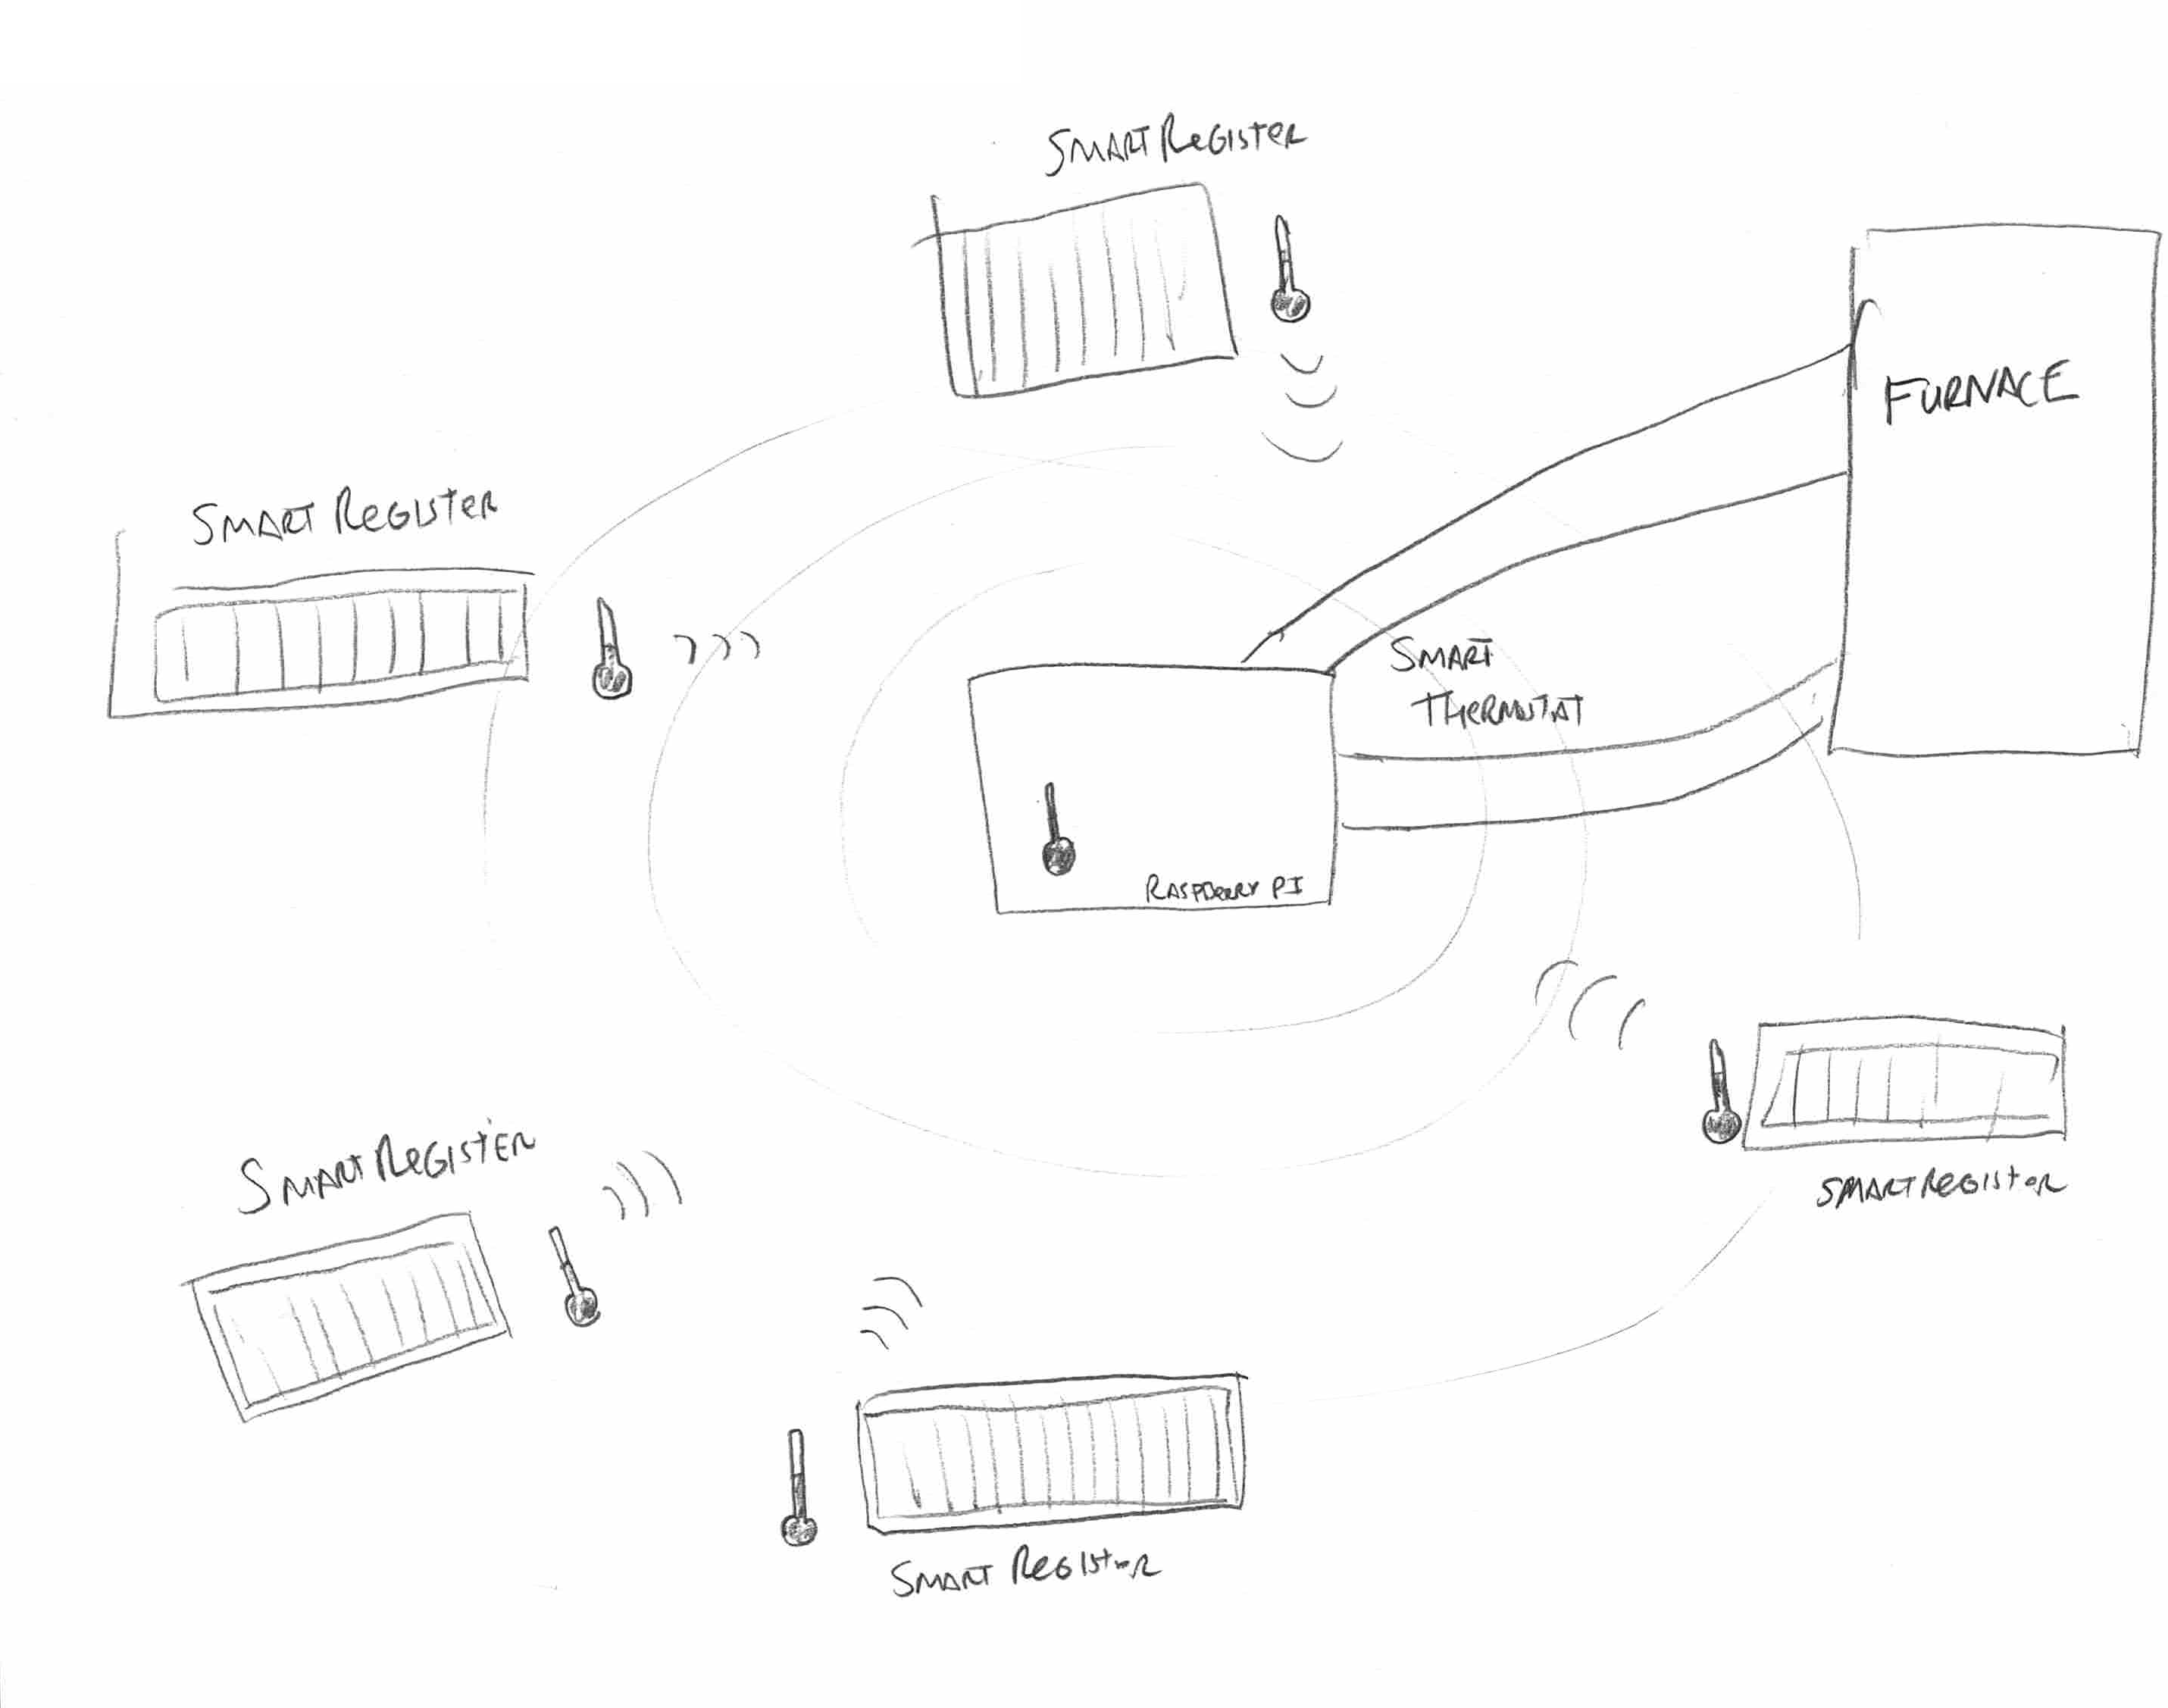 SMART REGISTER
FURNACE
SMART REGISTER
SMART
THERMOSTAT
RASPBERRY PI
SMART REGISTER
SMART REGISTER
SMART REGISTER